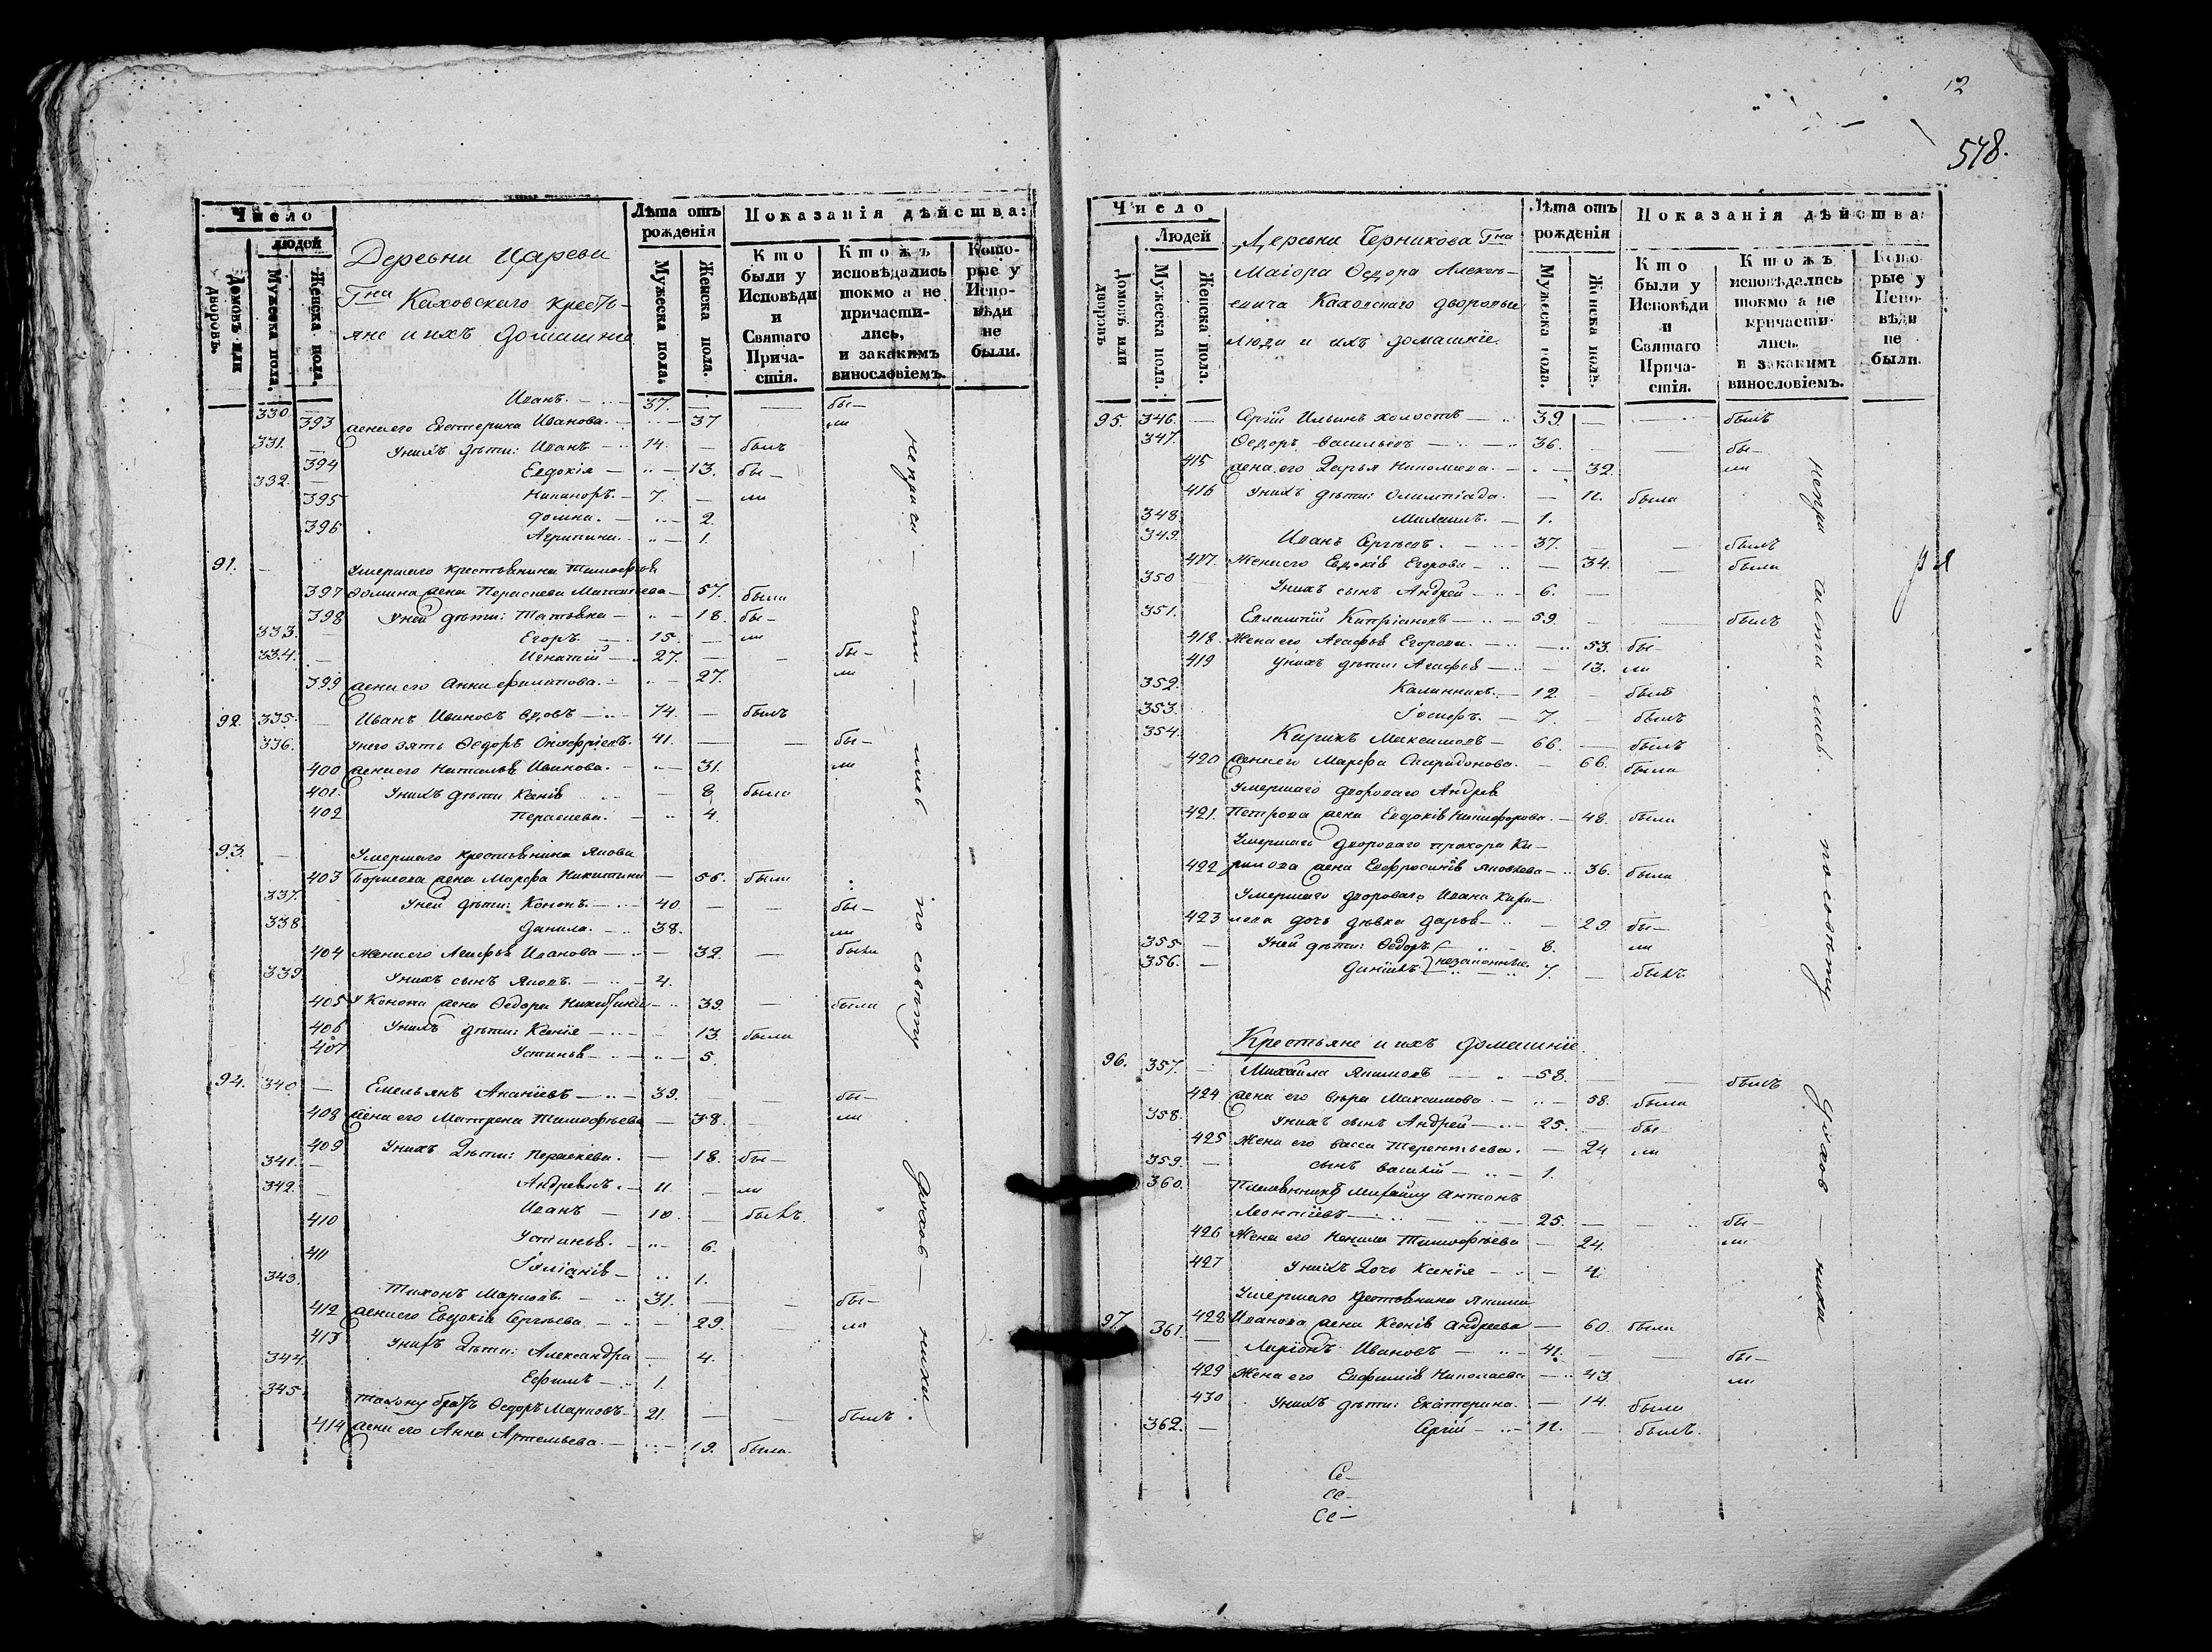 Число
людей
Домовъ или дворовъ.
Мужеска пола.
Женска пола.
Деревни Царева
Гна Каховскаго кресть-
яне и ихъ домашніе
Лѣта отъ рожденія
Мужеска пола.
Женска пола.
Показанія дѣйства:
Кто были у Исповѣди и Святаго Прича-стія.
Ктожъ исповѣдались токмо а не причасти-лись, и закакимъ винословіемъ.
Кото-рые у Испо-вѣди не были.
330. Иванъ. 37. бы-
393 жена его Екатерина Иванова. 37 ли
331. У нихъ дѣти: Иванъ 14. былъ
394 Евдокія 13. бы-
332. Никаноръ. 7. ли
395 Домна. 2.
396 Агрипина. 1.
91. Умершаго крестьянина Тимофея
397 Фомина жена Перасковья 57. была
398 У ней дѣти: Татьяна 18. бы-
333. Егоръ. 15. ли
334. Игнатій 27. бы-
399 жена его Анна Филипова. 27. ли
92. 335. Иванъ Ивановъ вдовъ 74. былъ
336. У него зять Ѳедоръ Онофріевъ. 41. бы-
400 жена его Наталья Иванова. 31. ли
401. У нихъ дѣти Ксенія 8 была
402 Пераскева. 4.
93. Умершаго крестьянина Якова
403 Борисова жена Марфа Никитина 56. была
337. У ней дѣти: Кононъ. 40. бы-
338 Данила. 38. ли
404 жена его Агафья Иванова 32. была
339. У нихъ сынъ Яковъ. 4.
405 У Конона жена Ѳедора Никитина 39. была
406 У нихъ дѣти: Ксенія 13. была
407 Устинья 5.
94. 340. Емельянъ Ананіевъ 39. бы-
408 жена его Матрена Тимофѣева 38. ли
409 У нихъ Дѣти: Пераскева. 18. бы-
341. Андреянъ. 11. ли
342. Иванъ 10. былъ.
410 Устинья. 6.
411 Іуліанія 1.
343. Тихонъ Марковъ. 31. бы-
412 жена его Евдокія Сергѣева 29. ли
413 У нихъ Дѣти: Александра 4.
344. Ефимъ 1.
345. Тихону братъ Ѳедоръ Марковъ. 21. былъ
414 жена его Анна Артемьева. 19. была.
неприча-сти-лись по совѣту духов-ника.
12
548.
Число
Людей
Домовъ или дворовъ
Мужеска пола.
Женска пола.
Деревни Черникова Гна
Маіора Ѳедора Алексѣ-
евича Каховскаго дворовые
люди и ихъ домашніе.
Лѣта отъ рожденія
Мужеска пола.
Женска пола.
Показанія дѣйства:
Кто были у Исповѣди и Святаго Прича-стія.
Ктожъ исповѣдались токмо а не причасти-лись. и закакимъ винословіемъ.
Кото-рые у Испо-вѣди не были.
95. 346. Сергій Ильинъ холостъ 39. былъ
347. Ѳедоръ Васильевъ 36. бы-
415 жена его Дарья 32. ли
416 У нихъ дѣти: Олимпіада. 11. была
348. Михаилъ. 1.
349. Иванъ Сергѣевъ. 37. былъ
417. Жена его Евдокія Егорова 34. была
350 У нихъ сынъ Андрей 6.
351. Евлампій Кипріановъ 59. былъ
418. Жена его Агафья Егорова. 53. бы-
419 У нихъ дѣти: Агафья 13. ли
352. Калинникъ. 12. былъ
353. Іосифъ. 7. былъ
354. Кирикъ Максимовъ 66. былъ
420 жена его Марфа Спиридонова. 66. была
Умершаго двороваго Андрея
421. Петрова жена Евдокія Никифорова. 48. была
Умершаго двороваго Прохора Ки-
422 рилова жена Евфросинія Яковлева 36. была
Умершаго двороваго Ивана Кири-
423 лова дочь дѣвка Дарья 29. бы-
355. У ней дѣти: Ѳедоръ 8. ли
незаконные.
356. Даніилъ 7. былъ
Крестьяне и ихъ домашніе.
96. 357. Михайла Якимовъ 58. былъ
424 жена его Вѣра Максимова. 58. была
358. У нихъ сынъ Андрей 25. бы-
425 Жена его Васса Терентьева. 24 ли
359. сынъ Василій 1.
360. Племянникъ Михайлу Антонъ
Леонтіевъ 25. бы-
426 Жена его Тимофѣева 24. ли
427 У нихъ Дочь Ксенія 4.
97. Умершаго крестьянина Якима
428 Иванова жена Ксенія Андреева 60. была
361. Ларіонъ Ивановъ 41. бы-
429 Жена его Евфимія Николаева 43. ли
430 У нихъ дѣти: Екатерина. 14. была
362. Сергій 11. былъ.
непри части лись. по совѣту духов-ника
Се-
се-
се-